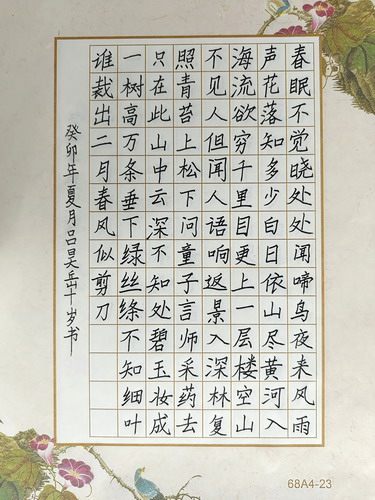 春眠不觉晓处处闻啼鸟夜来风雨
声花落知多少白日依山尽黄河入
海流欲穷千里目更上一层楼空山
不见人但闻人语响返景入深林复
照青苔上松下问童子言师采药去
只在此山中云深不知处碧玉妆成
一树高万条垂下绿丝绦不知细叶
谁裁出二月春风似剪刀
癸卯年夏月吕昊岳十岁书
68A4-23